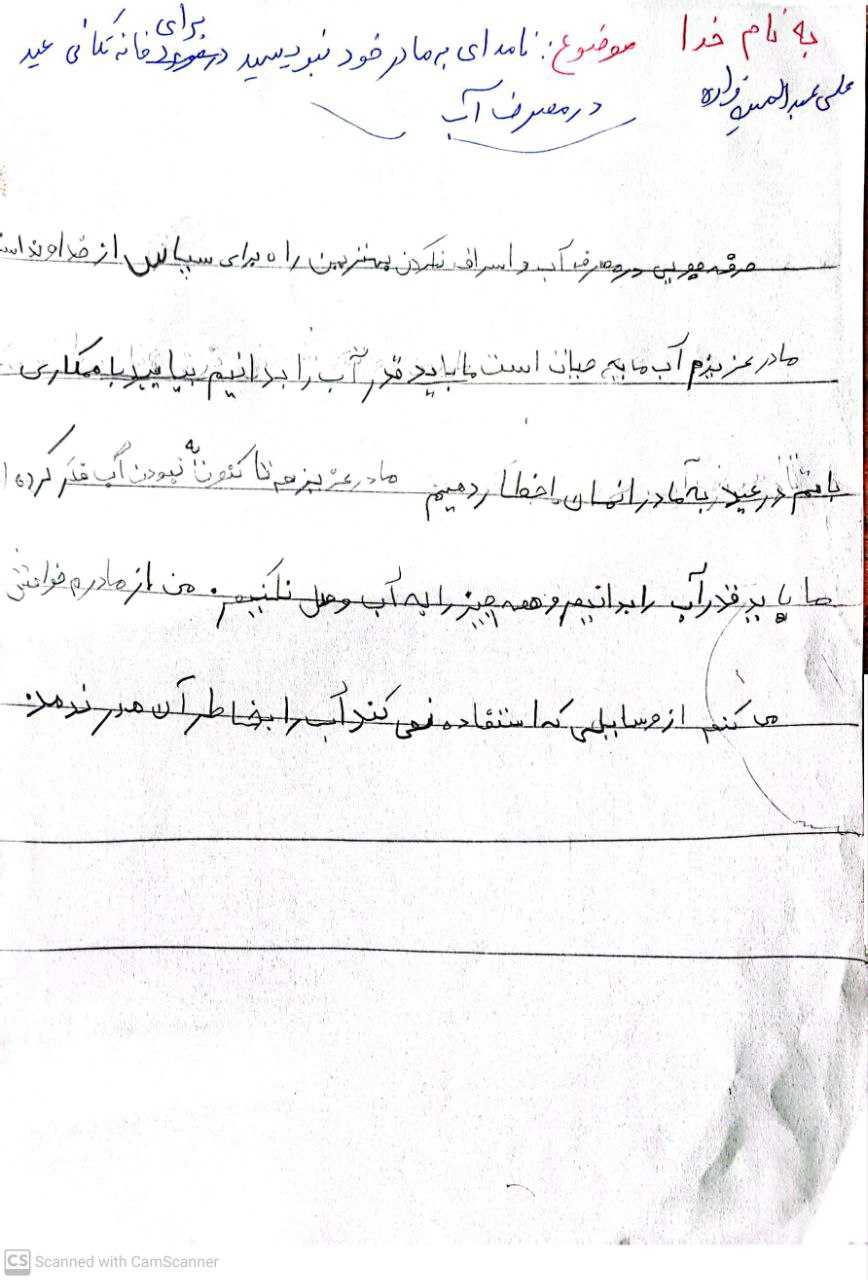 به نام خدا موضوع: نامه ای به مادر خود بنویسید برای خانه تکانی عید
در مصرف آب
صرفه جویی در مصرف آب و اسراف نکردن بهترین راه برای سپاس از خداوند است
مادر عزیزم آب مایه حیات است ما باید قدر آب را بدانیم بیایید با همکاری
باهم در عید به مادرانمان اخطار دهیم مادر عزیزم تا کنون به نبودن آب فکر کرده ا
ما باید قدر آب را بدانیم و همه چیز را به آب وصل نکنیم. من از مادرم خواهش
می کنم از وسایلی که استفاده نمی کند آب را بخاطر آن هدر ندهد
Scanned with CamScanner